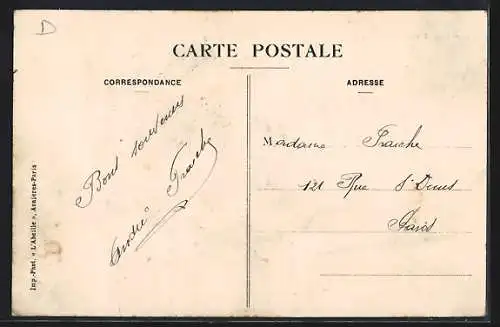 D
CARTE POSTALE
CORRESPONDANCE
ADRESSE
Bons souvenirs
André
Madame
121 Rue St Denis
Paris
Imp.-Phot. « L'Abeille », Asnières-Paris